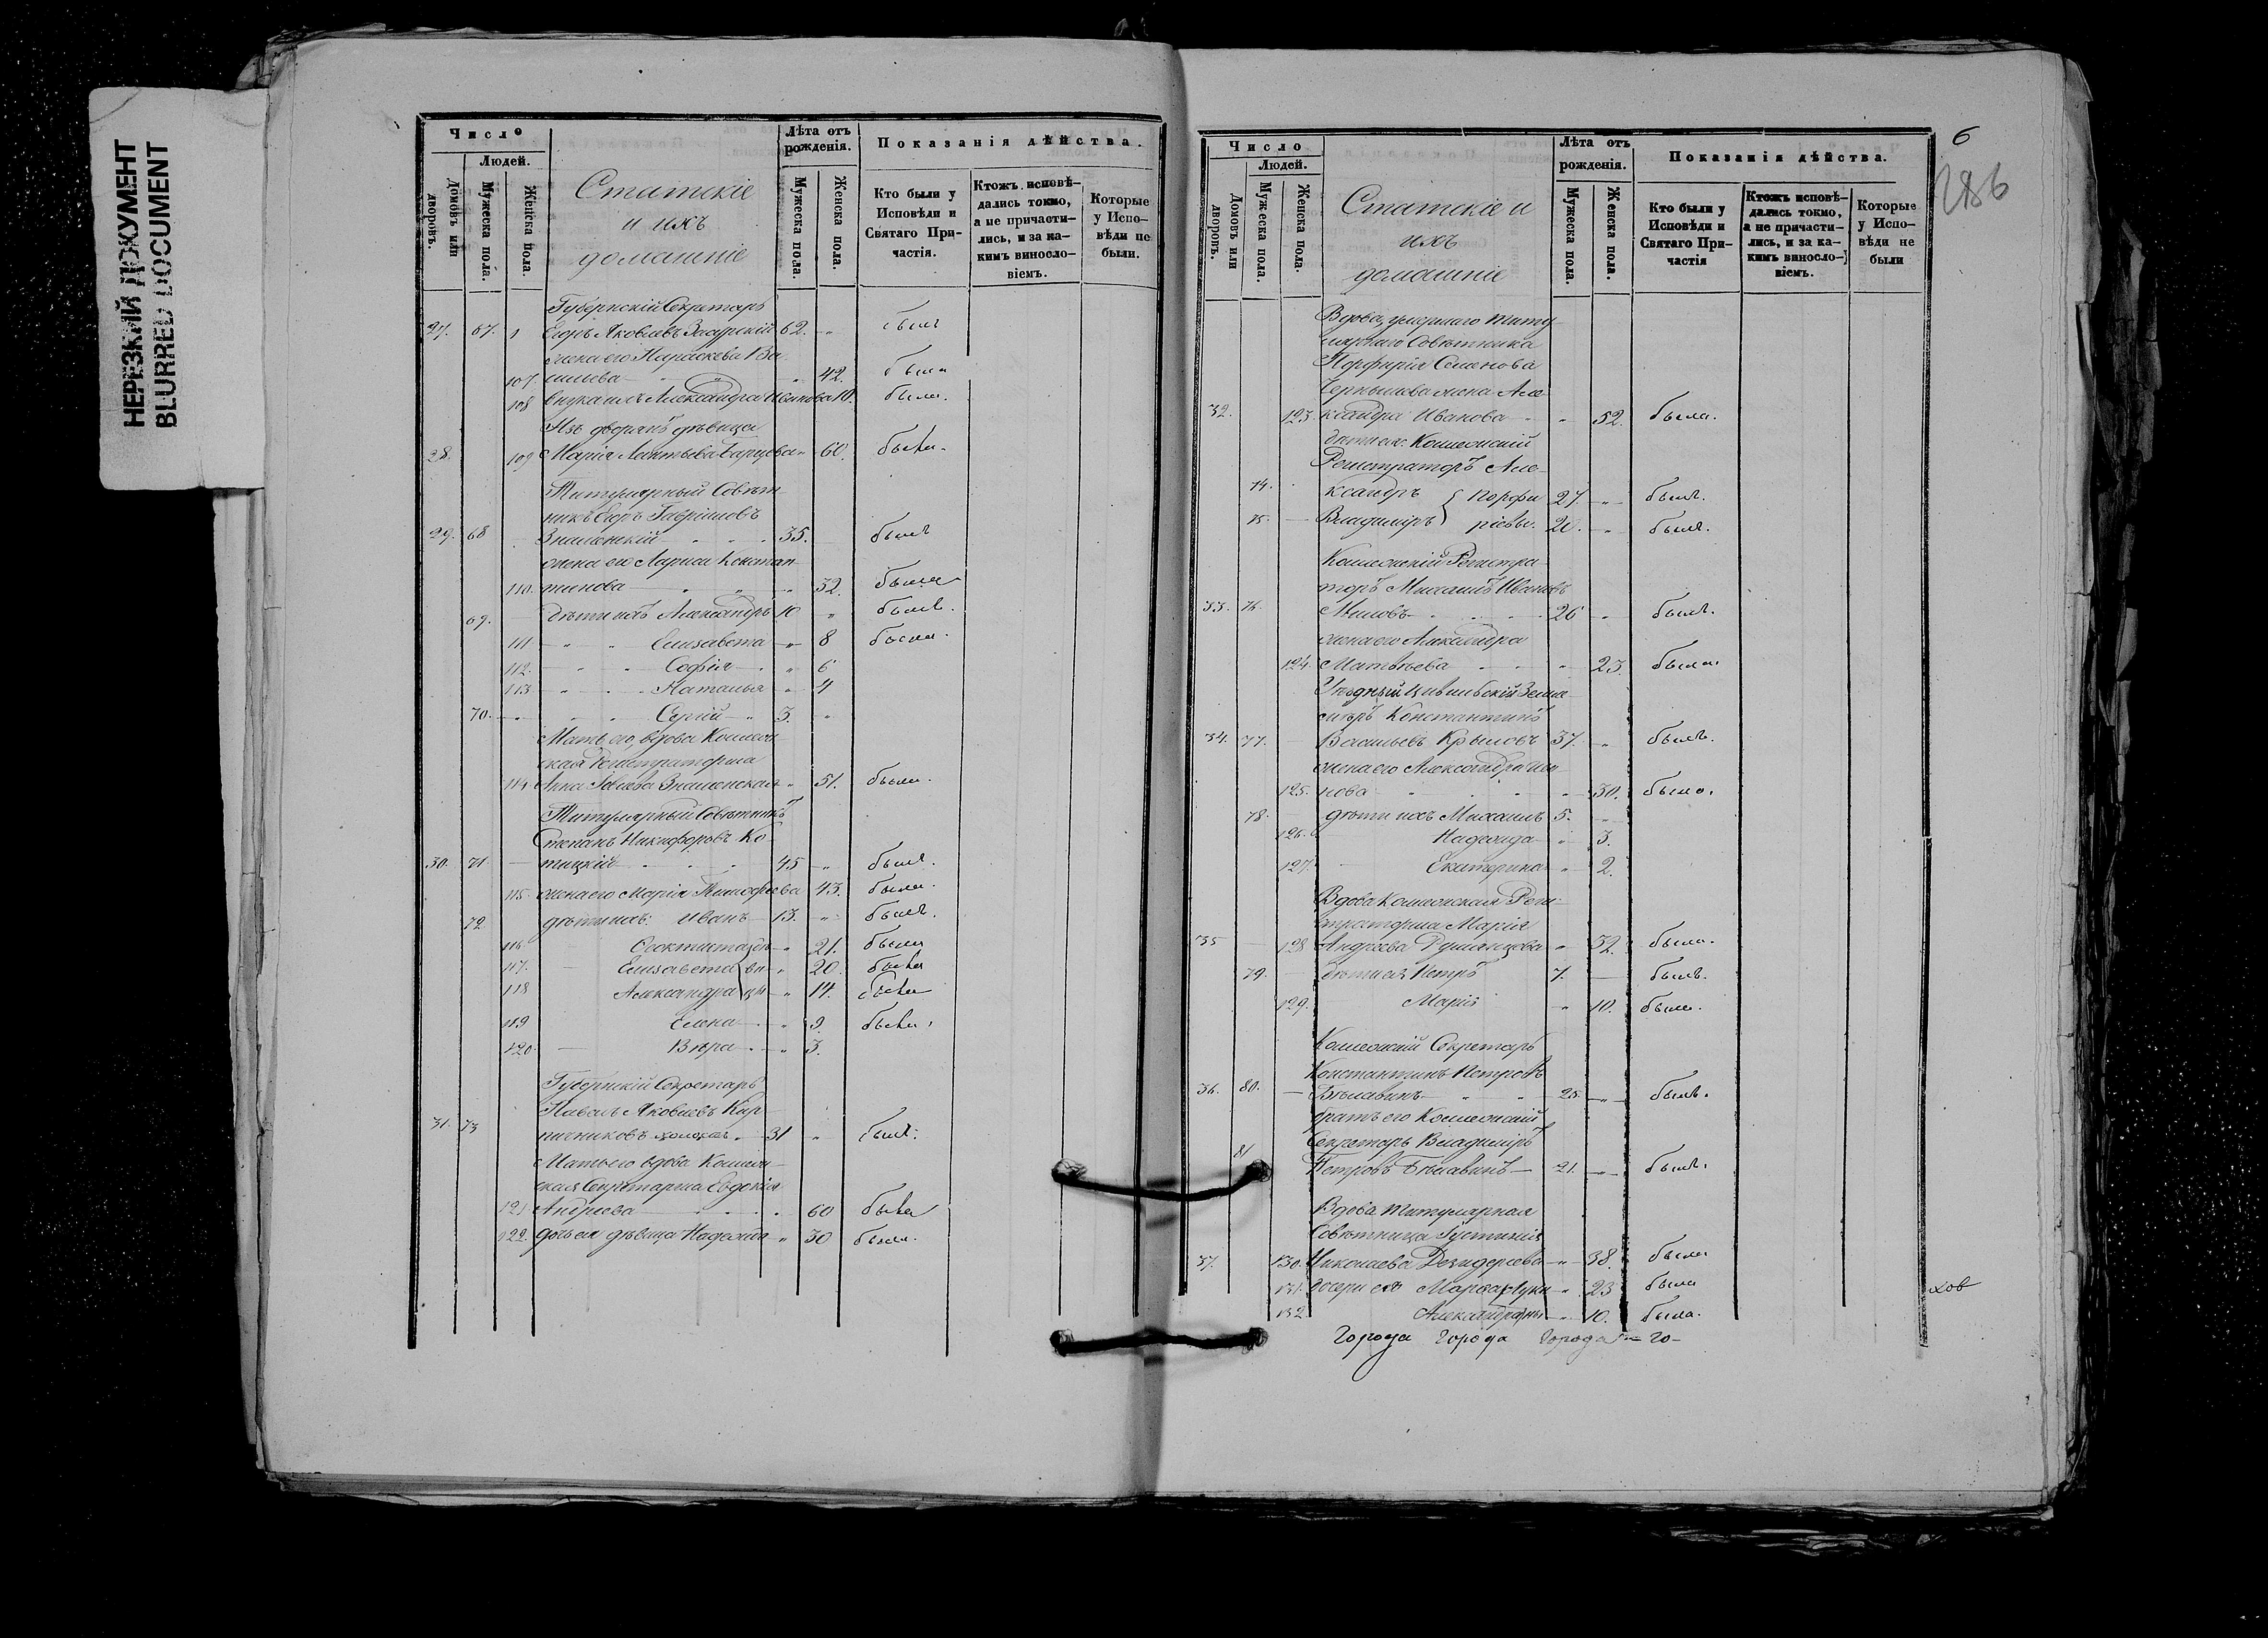 НЕРЕЗКИЙ ДОКУМЕНТ
BLURRED DOCUMENT
Число
Людей.
Домовъ или дворовъ.
Мужеска пола.
Женска пола.
Статскіе
и ихъ
домашніе
Лѣта отъ рожденія.
Мужеска пола.
Женска пола.
Показанія дѣйства.
Кто были у Исповѣди и Святаго Причастія.
Ктожъ исповѣдались токмо, а не причастились, и за какимъ винословіемъ.
Которые у Исповѣди не были.
Губернскій Секретарь
27. 67. Егоръ Яковлевъ 62. " былъ
жена его Параскева Ва-
107 сильева " 42. была
108 внука ихъ Александра Иванова 10. была.
Изъ дворянъ дѣвица
28. 109 Марія " 60. была.
Титулярный Совѣт-
никъ Егоръ Гавріиловъ
29. 68 Знаменскій 35. былъ
жена его Лариса Констан-
110. тинова " 32. была
69. дѣти ихъ Александръ 10 " былъ.
111 " " Елизавета " 8 была.
112. " " Софія " 6
113 " " Наталья " 4
70. " " Сергій " 3. "
Мать его, вдова Коллеж-
ская Регистраторша
114 Анна Знаменская " 51. была.
Титулярный Совѣтникъ
Степанъ Никифоровъ Ко-
30. 71. тицкій 45 " былъ.
115 жена его Марія Тимофеева 43. была.
72 дѣти ихъ: Иванъ 13. " былъ.
116 Феоктиста дѣ- " 21. была
117. Елизавета ви- " 20. была
118 Александра цы " 14. была
119 Елена " 9. была.
120 Вѣра " 3.
Губернскій Секретарь
Павелъ Яковлевъ Кир-
31. 73 пичниковъ холостъ 31 " былъ.
Мать его вдова Коллеж-
ская Секретарша Евдокія
121 Андреева 60 была
122. дочь ея дѣвица Надежда " 30 была.
6
286
Число
Людей.
Домовъ или дворовъ.
Мужеска пола.
Женска пола.
Статскіе и
ихъ
домашніе
Лѣта отъ рожденія.
Мужеска пола.
Женска пола.
Показанія дѣйства.
Кто были у Исповѣди и Святаго Причастія
Ктожъ исповѣдались токмо, а не причастились, и за какимъ винословіемъ.
Которые у Исповѣди не были
Вдова, умершаго Титу-
лярнаго Совѣтника
Порфирія Семенова
Чернышева жена Але-
32. 123. ксандра Иванова " 52. была.
дѣти ея: Коллежскій
Регистраторъ Але-
74. ксандръ { Порфи 27. " былъ.
75. Владиміръ ріевы. 20. " былъ.
Коллежскій Регистра-
торъ Михаилъ Ивановъ
33. 76. Миловъ 26 " былъ.
жена его Александра
124. Матвѣева " 23. была.
Уѣздный Цивильскій Земле-
мѣръ Константинъ
34. 77. Васильевъ Крыловъ 37. " былъ.
жена его Александра Ива-
125. нова " 30. была.
78. дѣти ихъ Михаилъ 5. "
126. Надежда " 3.
127. Екатерина " 2.
Вдова Коллежская Реги-
страторша Марія
35 128 Андреева Румянцова " 32. была.
79. дѣти ея Петръ 7. былъ.
129. Марія " 10. была.
Коллежскій Секретарь
Константинъ Петровъ
36. 80. Бѣлавинъ 25. " былъ.
братъ его Коллежскій
Секретарь Владиміръ
81 Петровъ Бѣлавинъ 21. " былъ.
Вдова Титулярная
Совѣтница Іустинія
37. 130. Николаева Дезидерьева " 38. была
131. дочери ея Марѳа Луки- " 23 была
132 Александра ны " 10. была.
Города Города Города го-